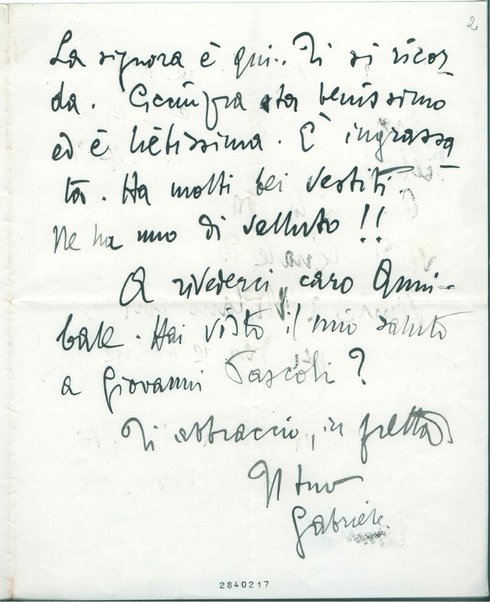 2
La signora è qui. Ti si ricor
da. Cicciuzza sta benissimo
ed è lietissima. È ingrassa
ta. Ha molti bei vestiti.
Ne ha uno di velluto!!
A rivederci caro Anni-
bale. Hai visto il mio saluto
a Giovanni Pascoli?
Ti abbraccio, in fretta
Il tuo
Gabriele.
2840217